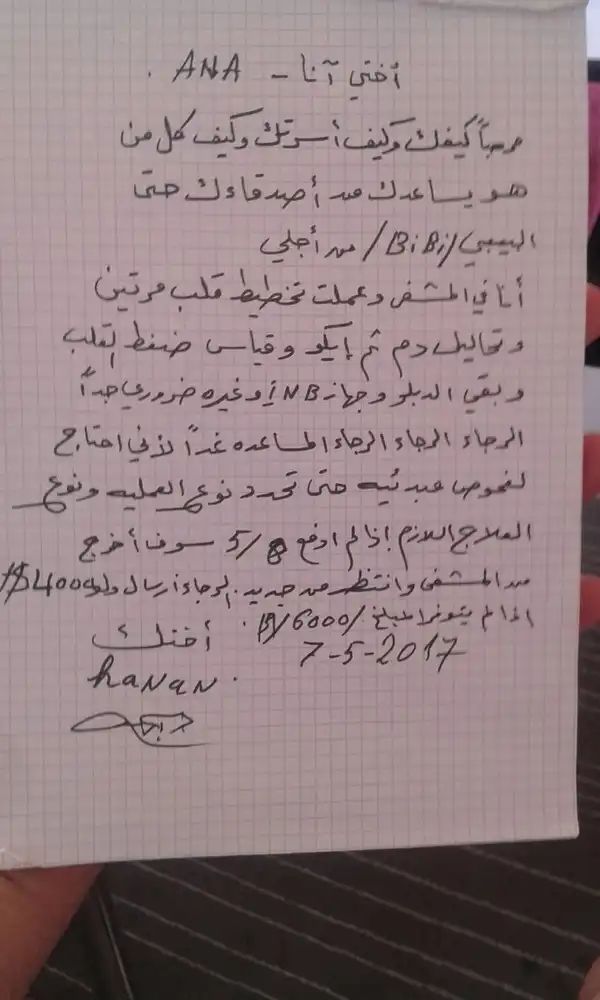 أختي آنا - ANA .
مرحباً كيفك وكيف أسرتك وكيف كل من
هو يساعدك من أصدقاءك حتى
البيبي/BiBi/ من أجلي
أنا في المشفى وعملت تخطيط قلب مرتين
وتحاليل دم ثم إيكو وقياس ضغط القلب
وبقي الدبلر وجهاز NB أو غيره ضروري جداً
الرجاء الرجاء الرجاء المساعده غداً لأني احتاج
لفحوص مبدئيه حتى تحدد نوع العمليه ونوع
العلاج اللازم إذا لم ادفع 8/5 سوف أخرج
من المشفى وانتظر من جديد. الرجاء أرسال ولو 4000$/
اذا لم يتوفر المبلغ /6000/$ .
أختك
7-5-2017
haNaN.